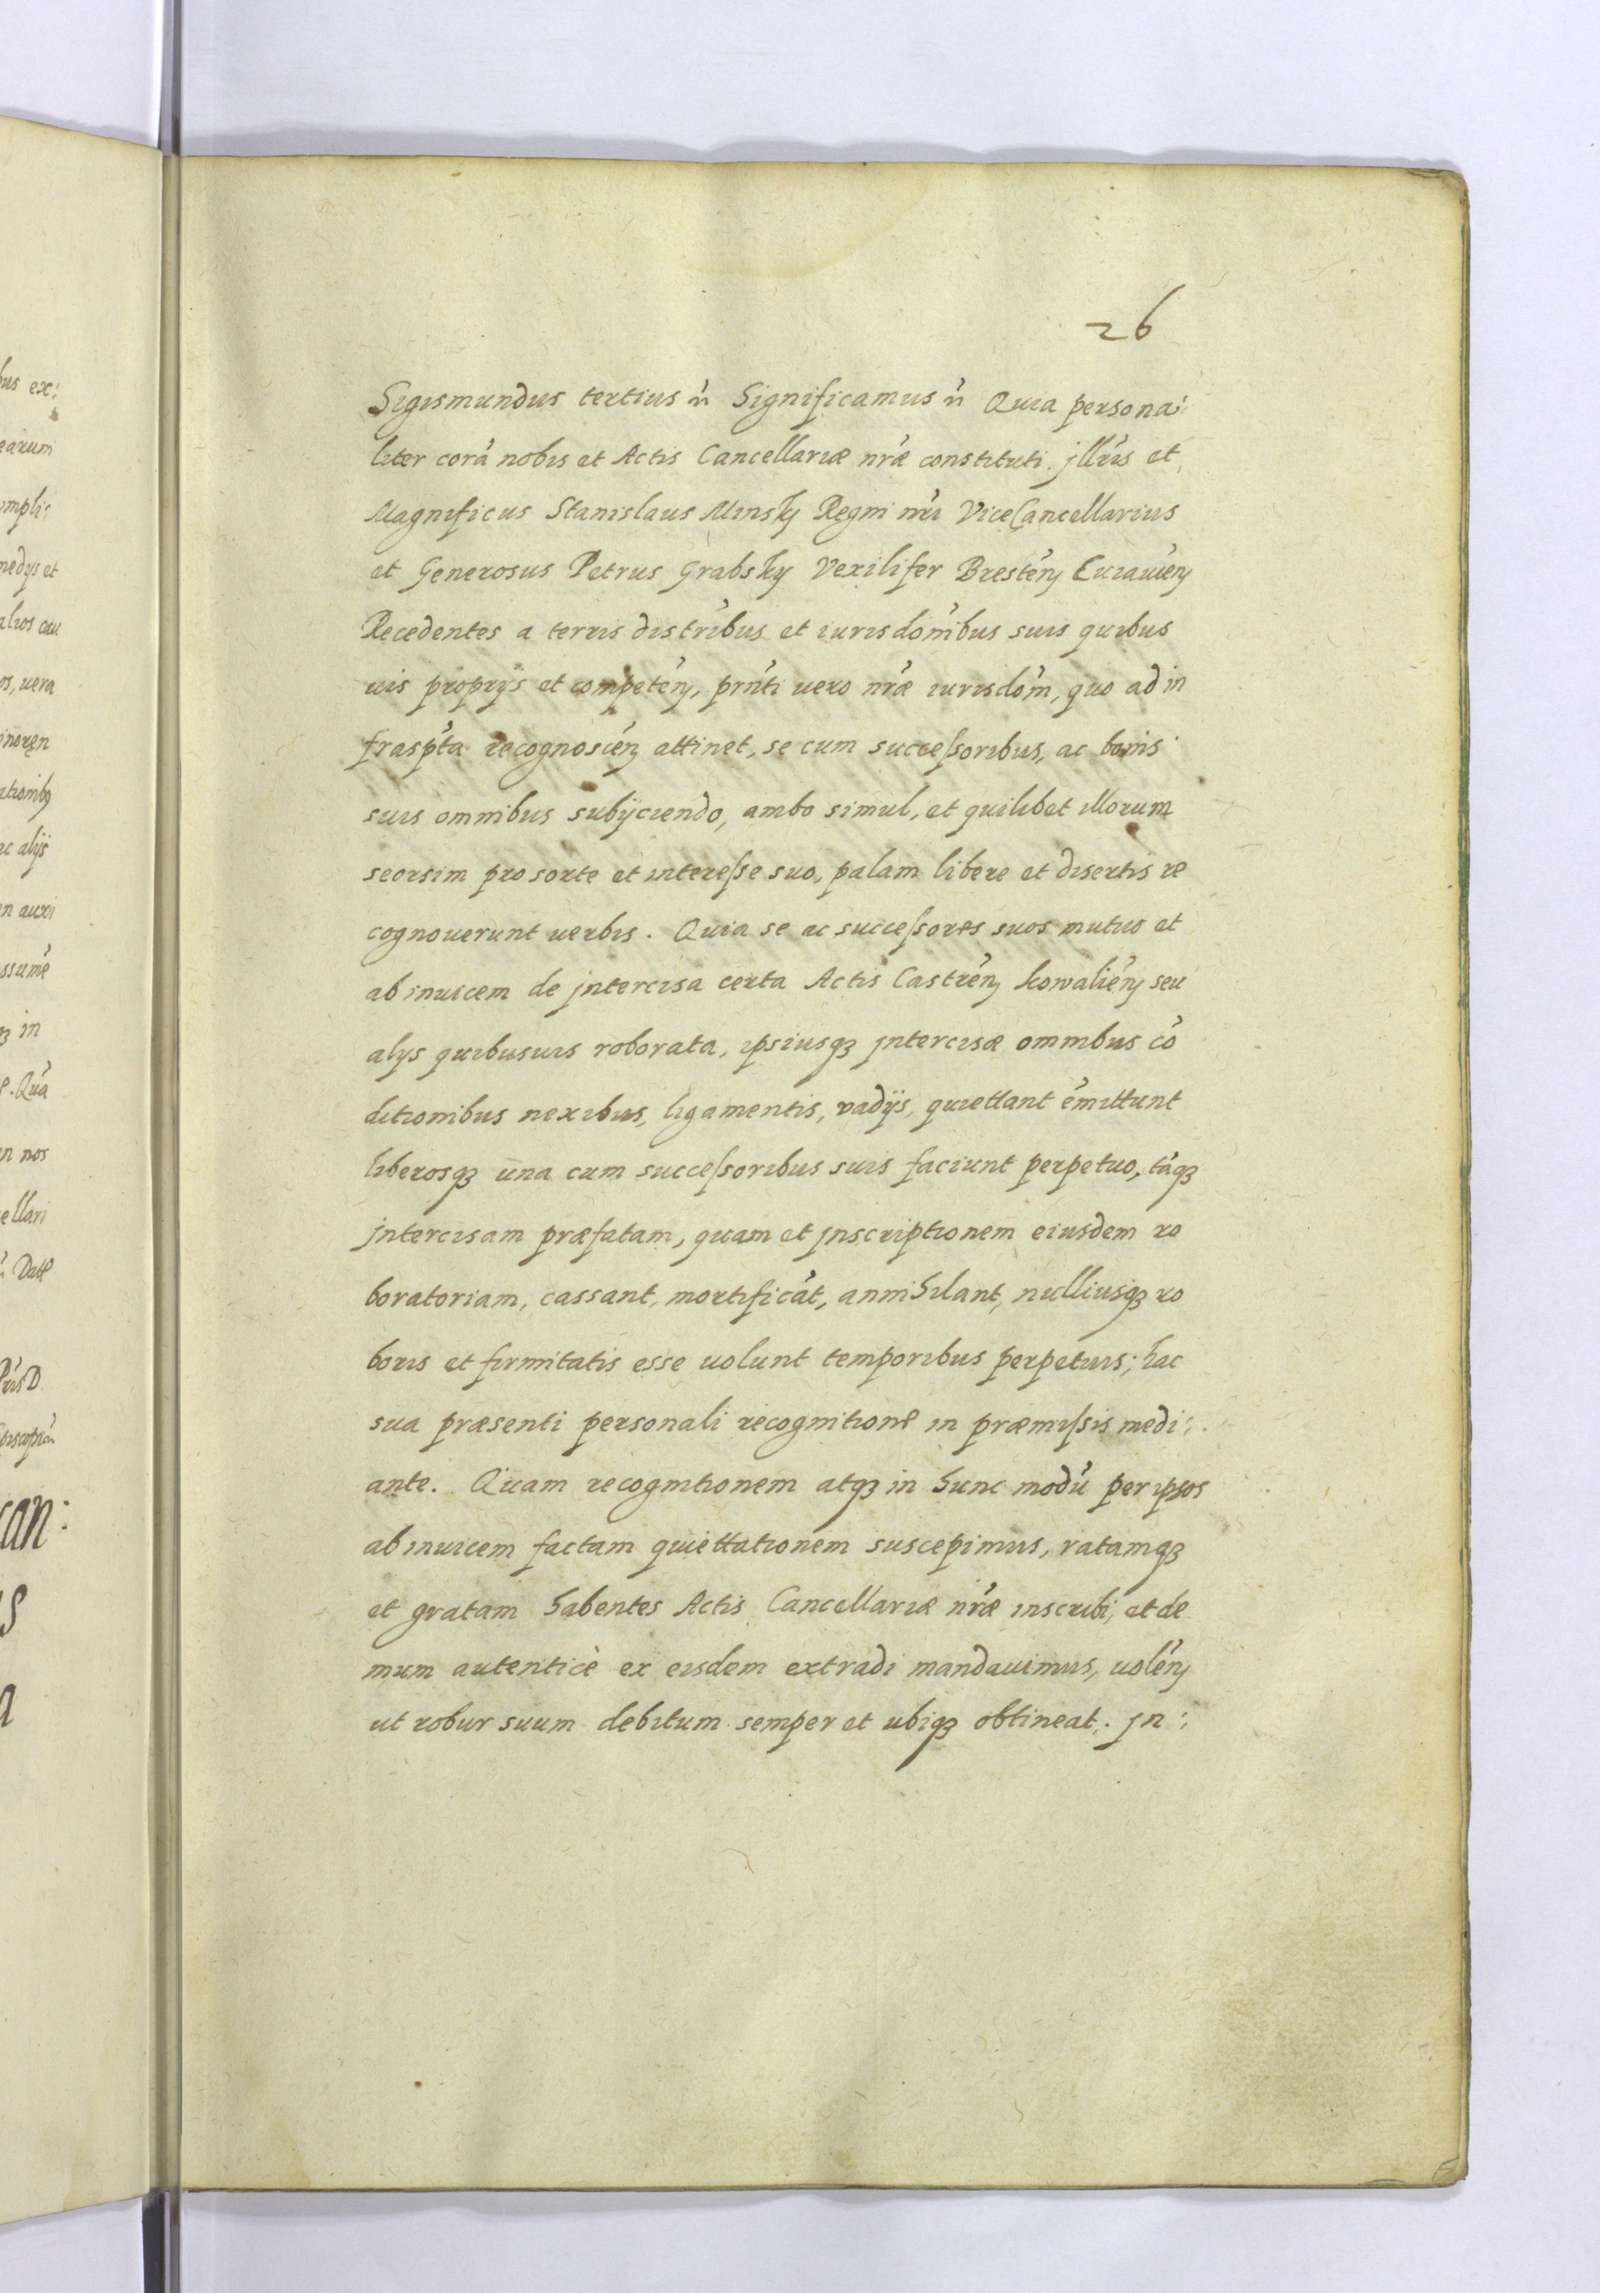 26
Sigismundus tertius ń Significamus ń Quia persona:
liter corā nobis et Actis Cancellariæ nr̃æ constituti jllr̃is et
Magnificus Stanislaus Minsky Regni nr̃i ViceCancellarius
et Generosus Petrus Grabsky Vexilifer Bresteń Cuiauień
Recedentes a terris distr̃ibus et iurisdoñibus suis quibus
uis proprijs et competeń, prñti vero nr̃æ iurisdoñi, quo ad in
frasp̃ta recognosceń attinet, se cum successoribus, ac bonis
suis omnibus subijciendo, ambo simul, et quilibet illorum
seorsim pro sorte et interesse suo, palam libere et disertis re
cognouerunt uerbis. Quia se ac successores suos mutuo et
ab inuicem de jntercisa certa Actis Castreń Kowalień seu
alys quibusuis roborata, ipsiusqȝ jntercisæ omnibus cō
ditionibus nexibus, ligamentis, vadijs, quiettant em̃ittunt
liberosqȝ una cum successoribus suis faciunt perpetuo, tāqȝ
jntercisam præfatam, quam et jnscriptionem eiusdem ro
boratoriam, cassant, mortificāt, annihilant, nulliusqȝ ro
boris et firmitatis esse uolunt temporibus perpetuis; hac
sua præsenti personali recognitione in præmissis medi:
ante. Quam recognitionem atqȝ in hunc modū per ipsos
ab inuicem factam quiettationem suscepimus, ratamqȝ
et gratam habentes Actis Cancellariæ nr̃æ inscribi, et de
mum autenticè ex eisdem extradi mandauimus, uoleń
ut robur suum debitum semper et ubiqȝ obtineat. jn: